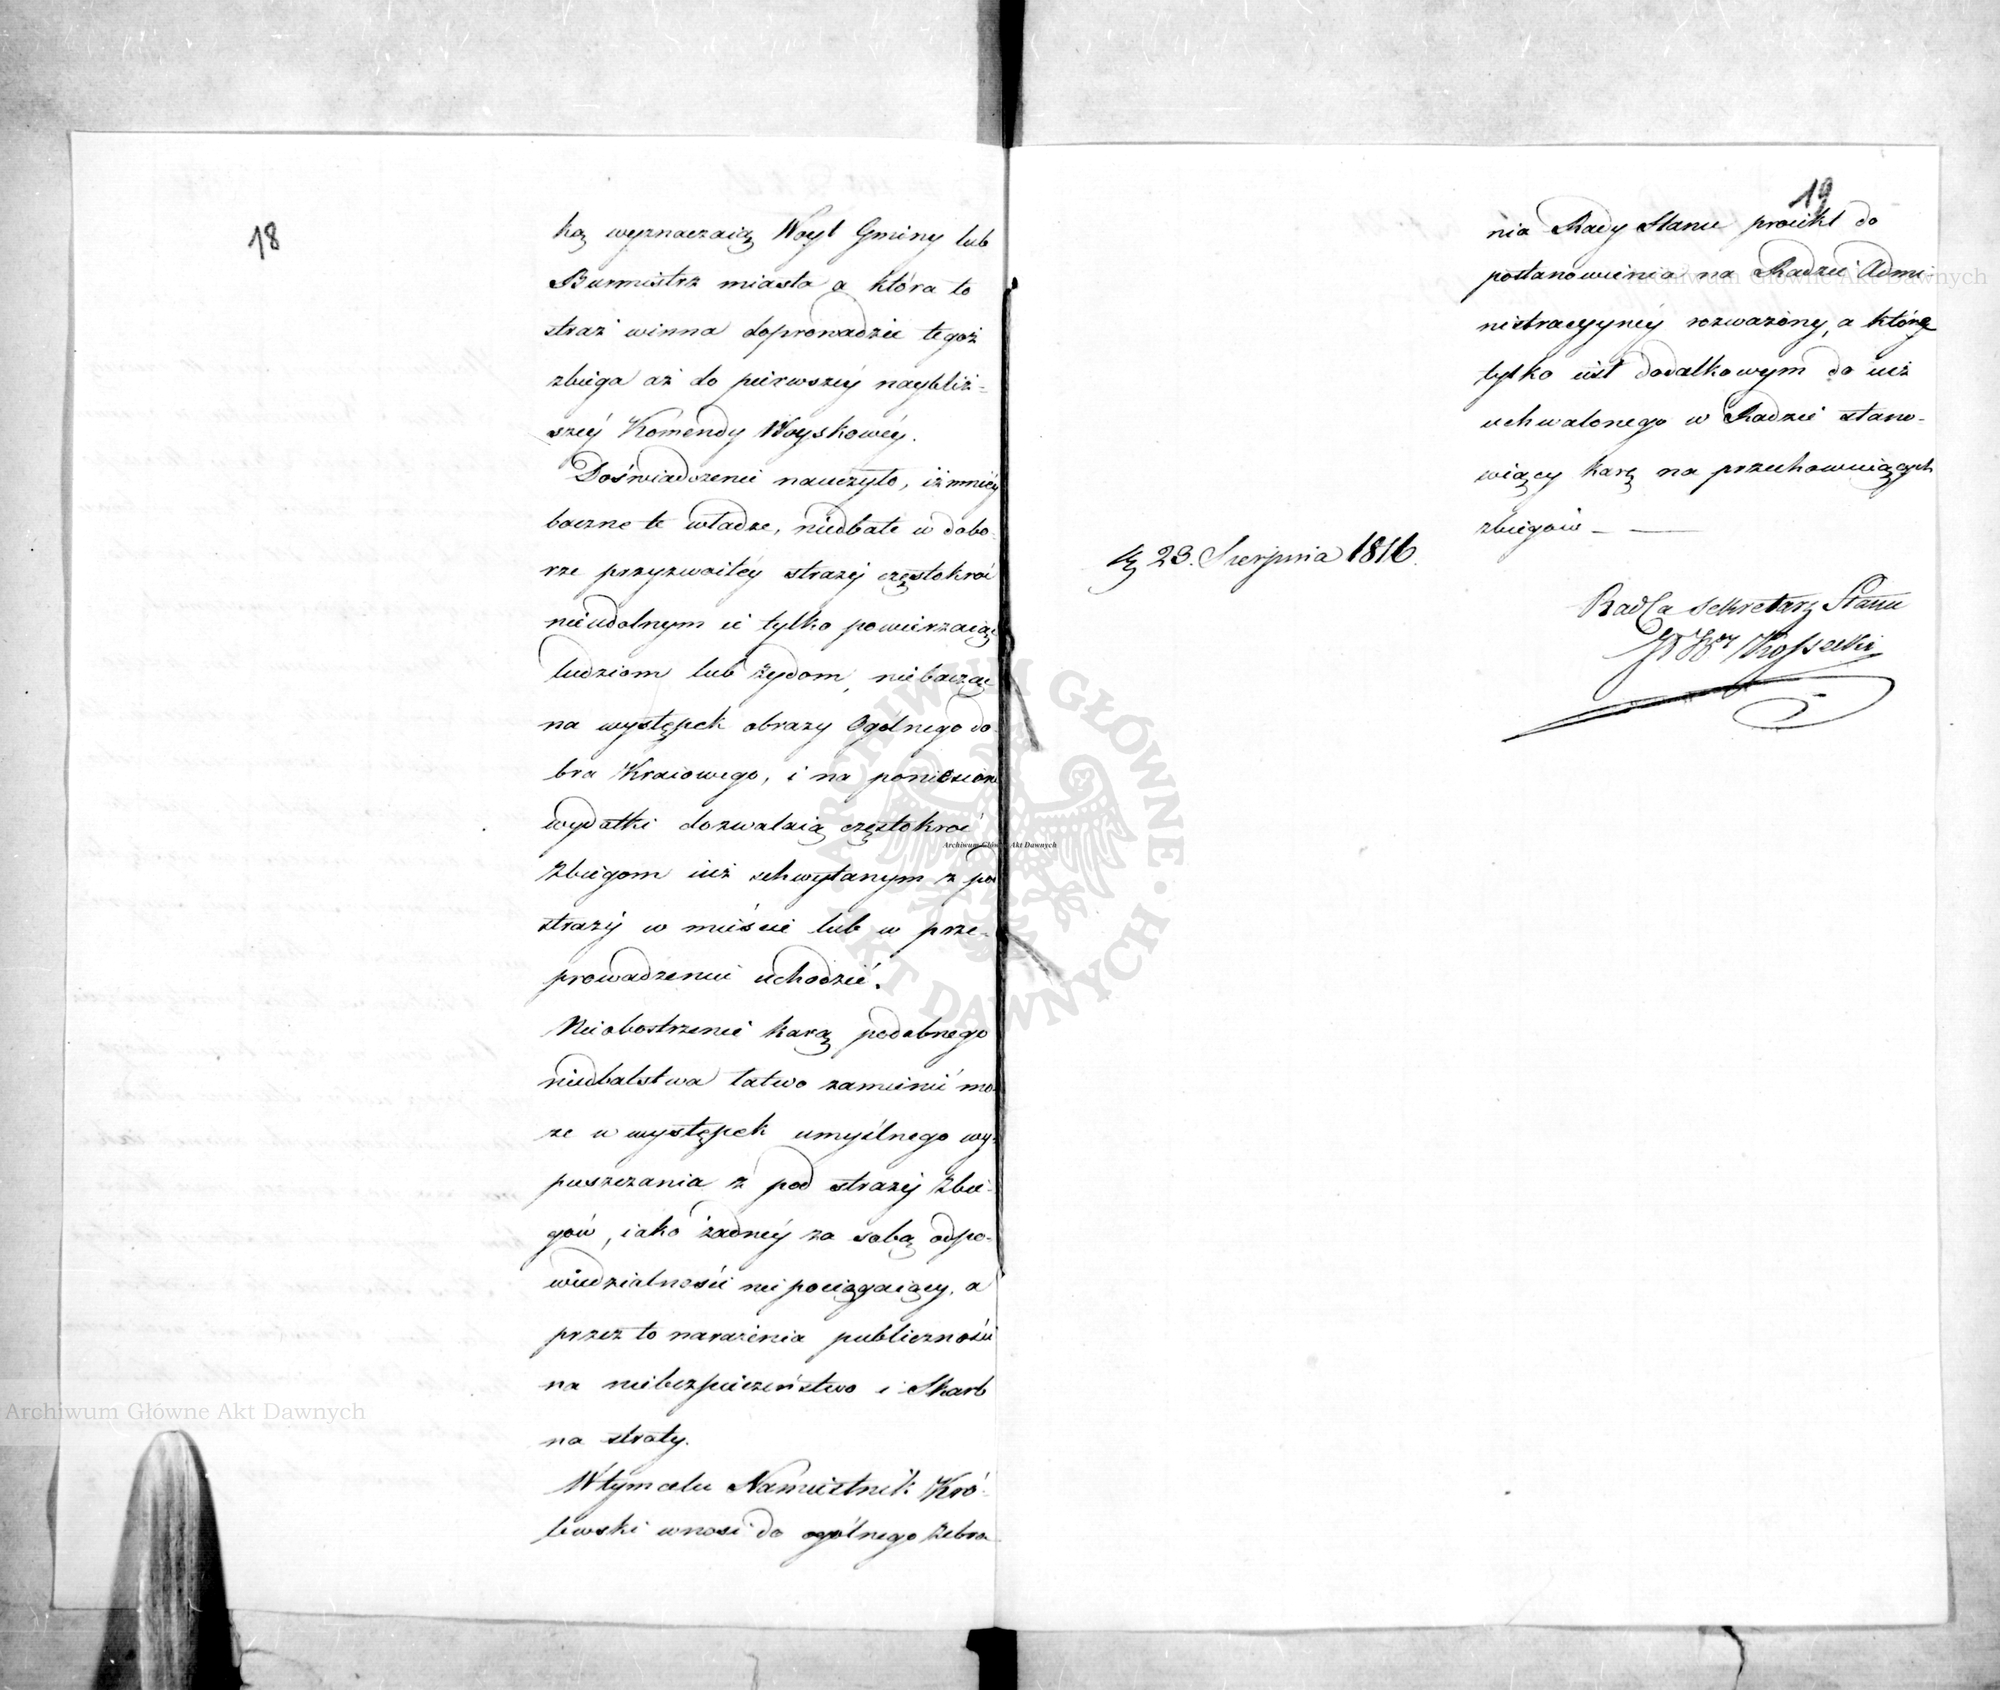 18
ką wyznaczaią Woyt Gminy lub
Burmistrz miasta a która to
straż winna doprowadzić tegoż
zbiega aż do pierwszey naybliż-
széy Komendy Woyskowéy.
Doświadczenie nauczyło, iż mniéy
baczne te władze, niedbałe w dobo-
rze przyzwoitéy straży częstokroć
nieudolnym ie tylko powierzaiąc
ludziom lub żydom, niebacząc
na występek obrazy Ogólnego do-
bra Kraiowego, i na poniesione
wydatki dozwalaią częstokroć
Zbiegom iuż schwytanym z pod
straży w mieście lub w prze-
prowadzeniu uchodzić.
Nieobostrzenie karą podobnego
niedbalstwa łatwo zamienić mo-
że w występek umyślnego wy-
puszczania z pod straży Zbie-
gów, iako żadnéy za sobą odpo-
wiedzialności nie pociągaiący, a
przez to narażenia publiczności
na niebezpieczeństwo i Skarb
na straty.
W tym celu Namiestnik Kró-
lewski wnosi do ogólnego Zebra-
19
nia Rady Stanu proiekt do
postanowienia na Radzie Admi-
nistracyjnéy rozważony, a który
tylko iest dodatkowym do iuż
uchwalonego w Radzie stano-
wiący karę na przechowuiących
zbiegów —
23. Sierpnia 1816.
Radca Sekretarz Stanu
Kossecki
Archiwum Główne Akt Dawnych
Archiwum Główne Akt Dawnych
Archiwum Główne Akt Dawnych
ARCHIWUM GŁÓWNE AKT DAWNYCH